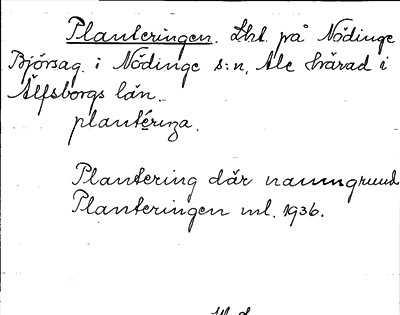 Planteringen. Lht. på Nödinge
Björsag. i Nödinge s:n, Ale härad i
Älfsborgs län.
plantérıŋa.
Plantering där namngrund
Planteringen ml. 1936.